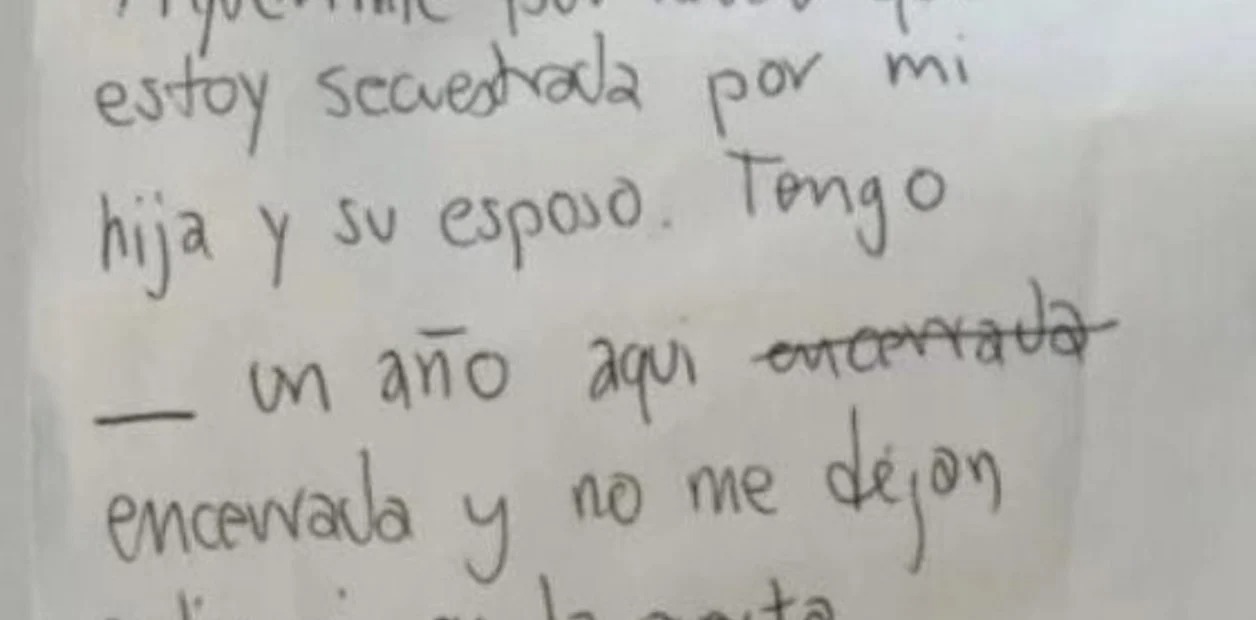 estoy secuestrada por mi
hija y su esposo. Tengo
__ un año aqui encerrada
encerrada y no me dejan